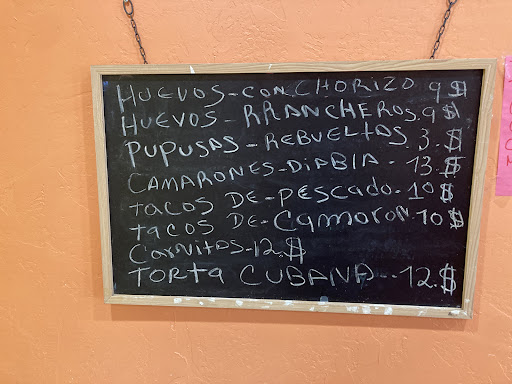 HUEVOS-CON CHORIZO 9 $
HUEVOS - RRANCHEROS. 9 $
PUPUSAS - REBUELTAS 3. $
CAMARONES-DIABLA - 13. $
tACOS DE-PESCADO. 10 $
tACOS DE-CAMARON. 10 $
CARNITAS-12.$
TORTA CUBANA -. 12.$